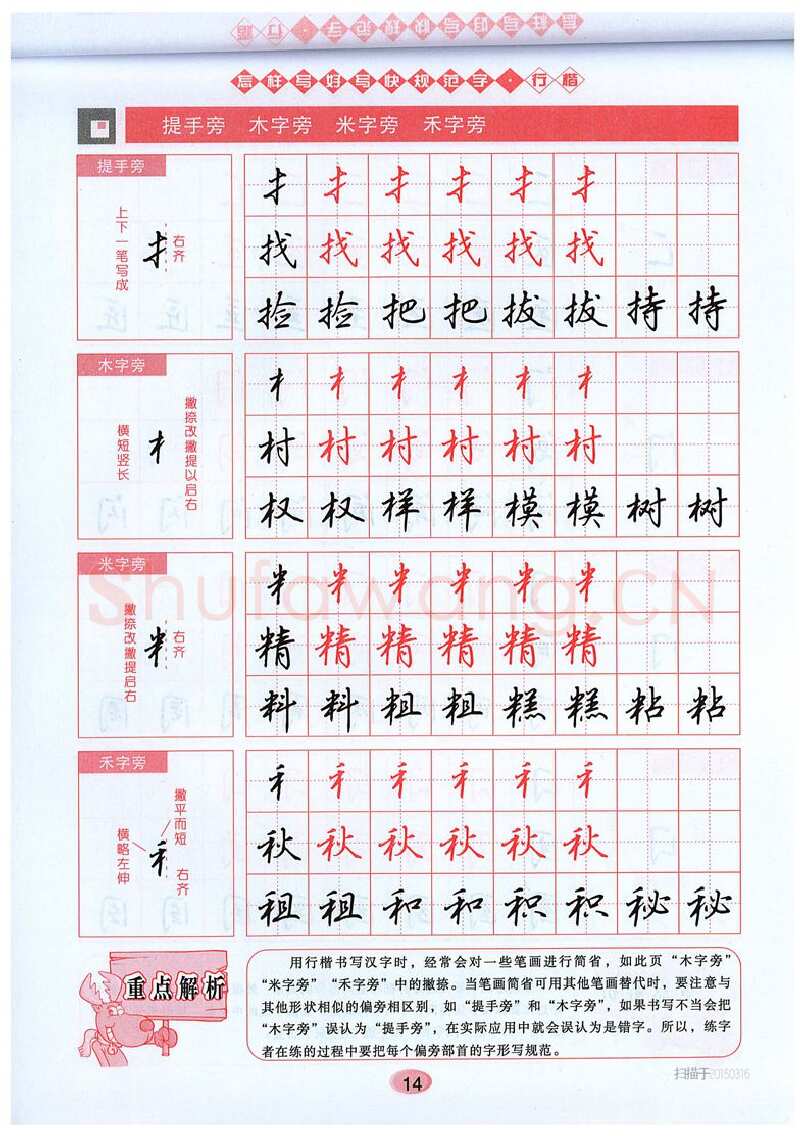 怎样写好写快规范字·行楷
提手旁 木字旁 米字旁 禾字旁
提手旁
上下一笔写成
右齐
扌 扌 扌 扌 扌 扌
找 找 找 找 找 找
捡 捡 把 把 拔 拔 持 持
木字旁
横短竖长
撇捺改撇提以启右
村 村 村 村 村 村
权 权 样 样 模 模 树 树
米字旁
撇捺改撇提启右
右齐
精 精 精 精 精 精
料 料 粗 粗 糕 糕 粘 粘
禾字旁
撇平而短
横略左伸
右齐
秋 秋 秋 秋 秋 秋
租 租 和 和 积 积 秘 秘
Shufawang.CN
重点解析
用行楷书写汉字时，经常会对一些笔画进行简省，如此页“木字旁”
“米字旁” “禾字旁”中的撇捺。当笔画简省可用其他笔画替代时，要注意与
其他形状相似的偏旁相区别，如“提手旁”和“木字旁”，如果书写不当会把
“木字旁”误认为“提手旁”，在实际应用中就会误认为是错字。所以，练字
者在练的过程中要把每个偏旁部首的字形写规范。
14
扫描于20150316